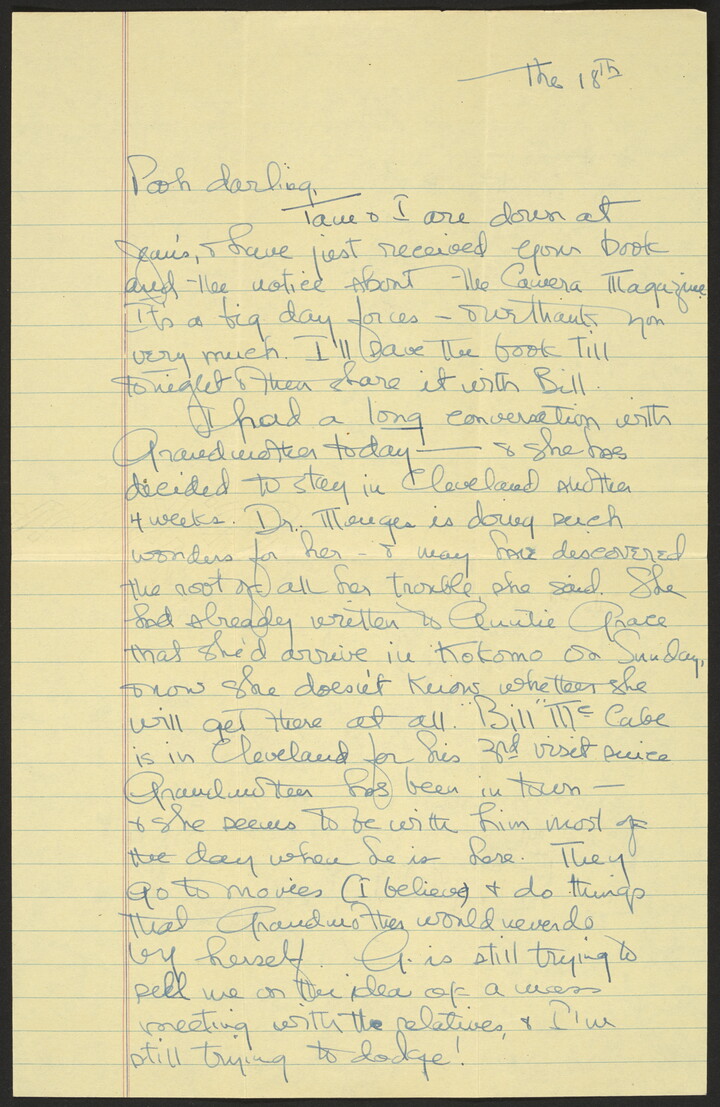 The 18th
Pooh darling,
Tam & I are down at
Jean's, & have just received your book
and the notice about the Camera Magazine
It's a big day for us – & we thank you
very much. I'll save the book till
tonight & then share it with Bill.
I had a long conversation with
Grandmother today — & she has
decided to stay in Cleveland another
4 weeks. Dr. Menges is doing such
wonders for her – & may have discovered
the root of all her trouble, she said. She
had already written to Auntie Grace
that she'd arrive in Kokomo on Sunday,
& now she doesn't know whether she
will get there at all. "Bill" McCabe
is in Cleveland for his 3rd visit since
Grandmother has been in town –
& she seems to be with him most of
the day when he is here. They
go to movies (I believe) & do things
that Grandmother would never do
by herself. G. is still trying to
sell me on the idea of a mass
meeting with the relatives, & I'm
still trying to dodge!